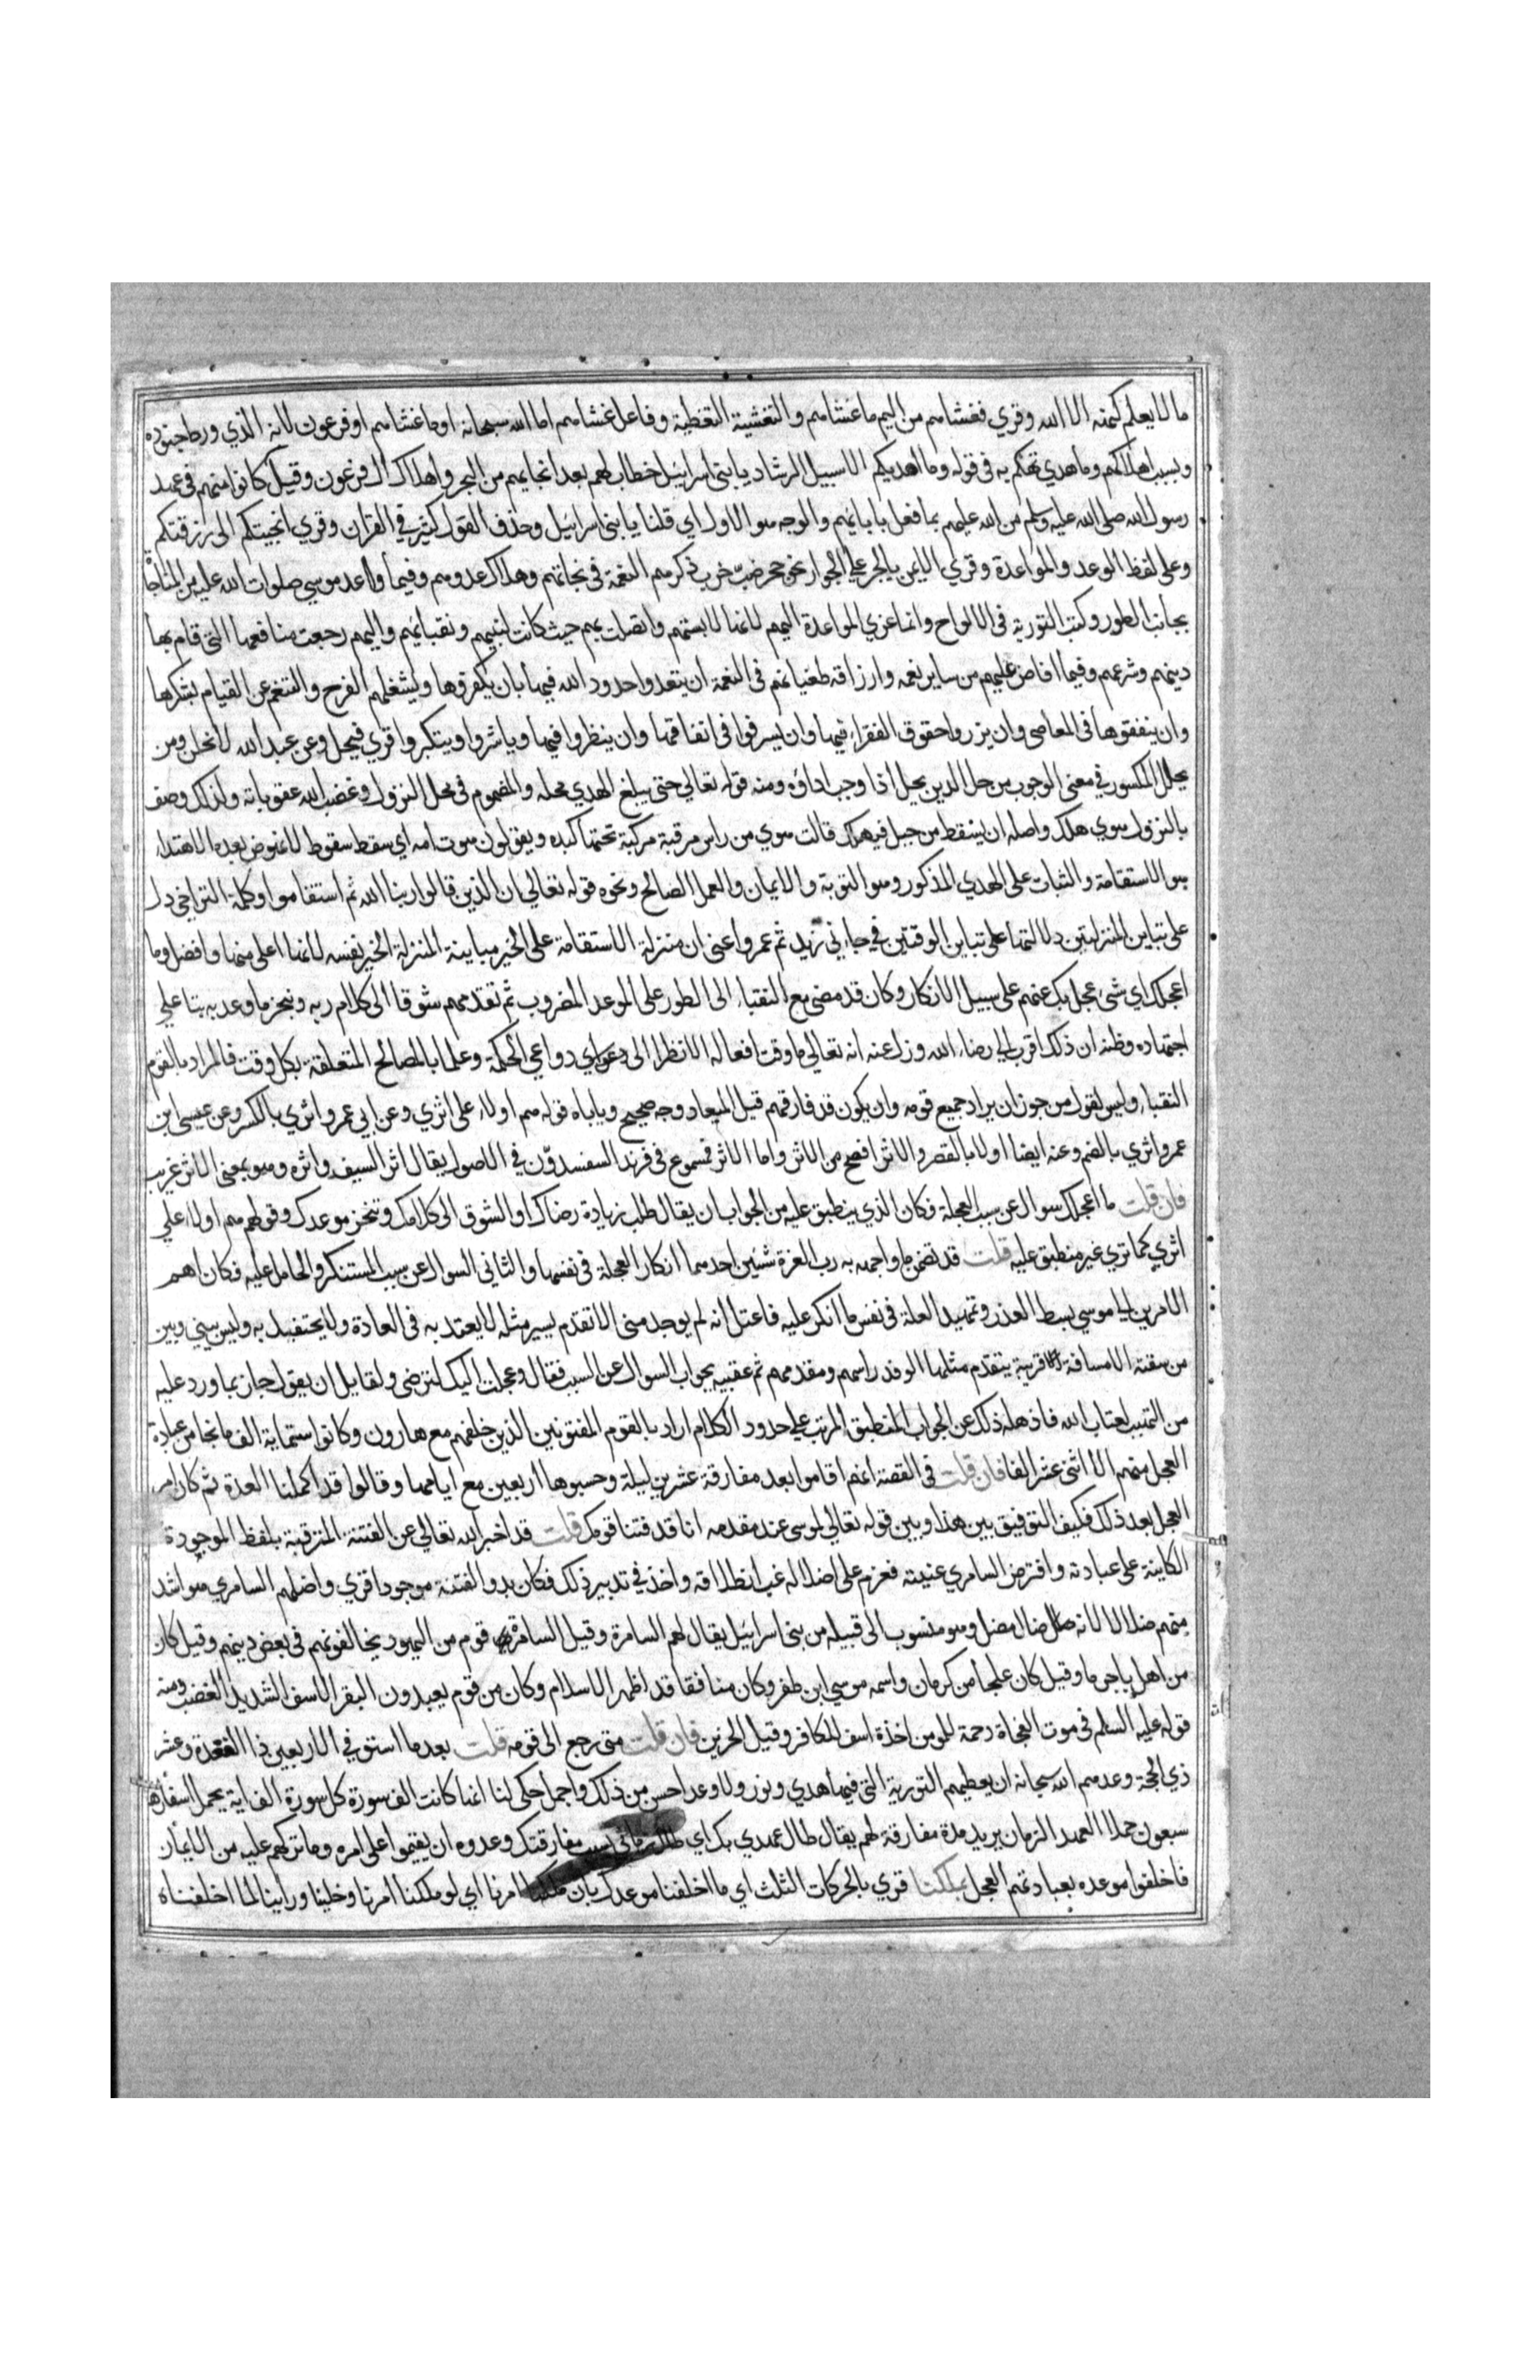 ما لا يعلم كنهه الا الله وقري فغشاهم من اليم ما غشاهم والتغشية التغطية وفاعل غشاهم اما الله سبحانه او ما غشاهم او فرعون لانه الذي ورط جنوده
وبسبب اهلاكهم وما هدي تهكم به في قوله وما اهديكم الا سبيل الرشاد يا بني اسرائيل خطاب لهم بعد انجايهم من البحر واهلاك ال فرعون وقيل كانوا منهم في عهد
رسول الله صلى الله عليه وسلم من الله عليهم بما فعل بابائهم والوجه هو الاول اي قلنا يا بني اسرائيل وحذف القول كثير في القران وقري انجيتكم الى رزقتكم
وعلى لفظ الوعد والمواعدة وقري الايمن بالجر علي الجوار نحو جحر ضب خرب ذكرهم النعمة في نجاتهم وهلاك عدوهم وفيما واعد موسي صلوات الله عليه من المناجاة
بجانب الطور وكتب التورية في الالواح وانما عزي المواعدة اليهم لانها لابستهم واتصلت بهم حيث كانت لنبيهم ونقبائهم واليهم رجعت منافعها التي قام بها
دينهم وشرعهم وفيما افاض عليهم من ساير نعمه وارزاقه طغيانهم في النعمة ان يتعدوا حدود الله فيها بان يكفروها ويشغلهم الفرح والتنعم عن القيام بشكرها
وان ينفقوها في المعاصي وان يزروا حقوق الفقراء فيها وان يسرفوا في انفاقها وان ينظروا فيها وياشروا ويتكبروا قري فيحل وعن عبد الله لا يحلن ومن
يحلل المكسور في معنى الوجوب من حل الدين يحل اذا وجب اداؤه ومنه قوله تعالي حتى يبلغ الهدي محله والمضموم في محل النزول وغضب الله عقوباته ولذلك وصف
بالنزول هوي هلك واصله ان يسقط من جبل فيهلك قالت هوي من راس مرقبة مركبة تحتها كبده ويقولون هوت امه اي سقط سقوطا لا نهوض بعده الاهتداء
هو الاستقامة والثبات على الهدي المذكور وهو التوبة والايمان والعمل الصالح ونحوه قوله تعالي ان الذين قالوا ربنا الله ثم استقاموا وكلمة التراخي دل
على تباين المنزلتين دلالتها على تباين الوقتين في جاءني زيد ثم عمرو اعني ان منزلة الاستقامة على الخير مباينة المنزلة الخير نفسه لانها اعلى منها وافضل وما
اعجلك اي شئ عجل بك عنهم على سبيل الانكار وكان قد مضى مع النقباء الى الطور على الموعد المضروب ثم تقدمهم شوقا الى كلام ربه وتنجز ما وعد به بنا علي
اجتهاده وظنه ان ذلك اقرب الي رضاء الله وزل عنه انه تعالي ما وقت افعاله الا نظرا الى دواعي الحكمة وعلما بالمصالح المتعلقة بكل وقت فالمراد بالقوم
النقباء وليس لقول من جوز ان يراد جميع قومه وان يكون قد فارقهم قبل الميعاد وجه صحيح وياباه قوله هم اولاء على اثري وعن ابي عمرو اثري بالكسر وعن عيسى ابن
عمرو اثري بالضم وعنه ايضا اولا بالقصر والاثر افصح من الاثر واما الاثر فمسموع في فرند السيف مدون في الاصول يقال اثر السيف واثره وهو بمعنى الاثر غريب
فان قلت ما اعجلك سوال عن سبب العجلة فكان الذي ينطبق عليه من الجواب ان يقال طلب زيادة رضاك او الشوق الى كلامك وتنجز موعدك وقولهم هم اولاء علي
اثري كما تري غير منطبق عليه قلت قد تضمن ما واجهه به رب العزة شئين احدهما انكار العجلة في نفسها والثاني السوال عن سبب المستنكر والحامل عليه فكان اهم
الامرين الي موسي بسط العذر وتمهيد العلة في نفس ما انكر عليه فاعتل انه لم يوجد مني الا تقدم يسير مثله لا يعتد به في العادة ولا يحتفل به وليس بيني وبين
من سقته الا مسافة قريبة يتقدم مثلها الوفد راسهم ومقدمهم ثم عقبيه بجواب السوال عن السبب فقال وعجلت اليك لترضى ولقايل ان يقول حاز بما ورد عليه
من التهيب لعتاب الله فاذهله ذلك عن الجواب المنطبق المرتب على حدود الكلام اراد بالقوم المفتونين الذين خلفهم مع هارون وكانوا ستماية الف ما نجا من عبادة
العجل منهم الا اثني عشر الفا فان قلت في القصة انهم اقاموا بعد مفارقة عشرين ليلة وحسبوها اربعين مع ايامها وقالوا قد اكملنا العدة ثم كان امر
العجل بعد ذلك فكيف التوفيق بين هذا وبين قوله تعالي لموسى عند مقدمه انا قد فتنا قومك قلت قد اخبر الله تعالي عن الفتنة المترقبة بلفظ الموجودة
الكاينة على عبادته وافترض السامري غيبته فعزم على اضلاله غب انطلاقه واخذ في تدبير ذلك فكان بدو الفتنة موجودا قري واضلهم السامري هو اشد
منهم ضلالا لانه ضال مضل وهو منسوب الى قبيلة من بني اسرائيل يقال لهم السامرة وقيل السامرة قوم من اليهود يخالفونهم في بعض دينهم وقيل كان
من اهل باجرما وقيل كان علجا من كرمان واسمه موسي ابن ظفر وكان منافقا قد اظهر الاسلام وكان من قوم يعبدون البقر الاسف الشديد الغضب ومنه
قوله عليه السلم في موت الفجاة رحمة للمومن اخذة اسف للكافر وقيل الحزين فان قلت متى رجع الى قومه قلت بعد ما استوفي الاربعين ذا القعدة وعشر
ذي الحجة وعدهم الله سبحانه ان يعطيهم التورية التي فيها هدي ونور ولا وعد احسن من ذلك واجمل حكى لنا انها كانت الف سورة كل سورة الف اية يحمل اسفارها
سبعون جملا العهد الزمان يريد مدة مفارقة لهم يقال طال عهدي بك اي طال زماني بسبب مفارقتك وعدوه ان يقيموا على امره وما تركهم عليه من الايمان
فاخلفوا موعده بعبادتهم العجل بملكنا قري بالحركات الثلث اي ما اخلفنا موعدك بان ملكنا امرنا اي لو ملكنا امرنا وخلينا وراينا لما اخلفناه